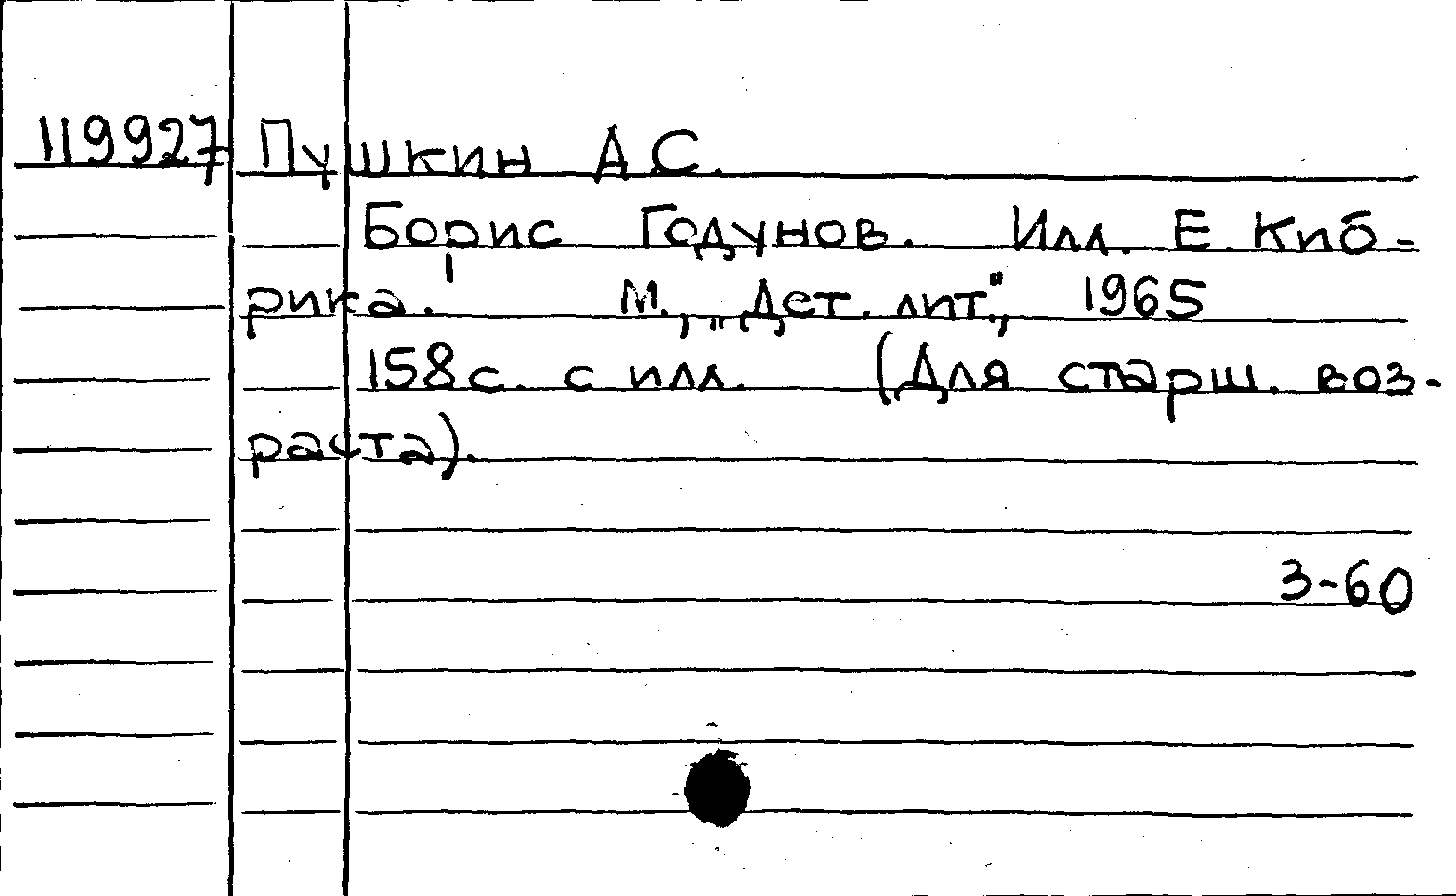 119927 Пушкин А С.
Борис Годунов. Илл. Е. Киб-
рика. М., „Дет. лит.", 1965
158с. с илл. (Для старш. воз-
раста).
3-60